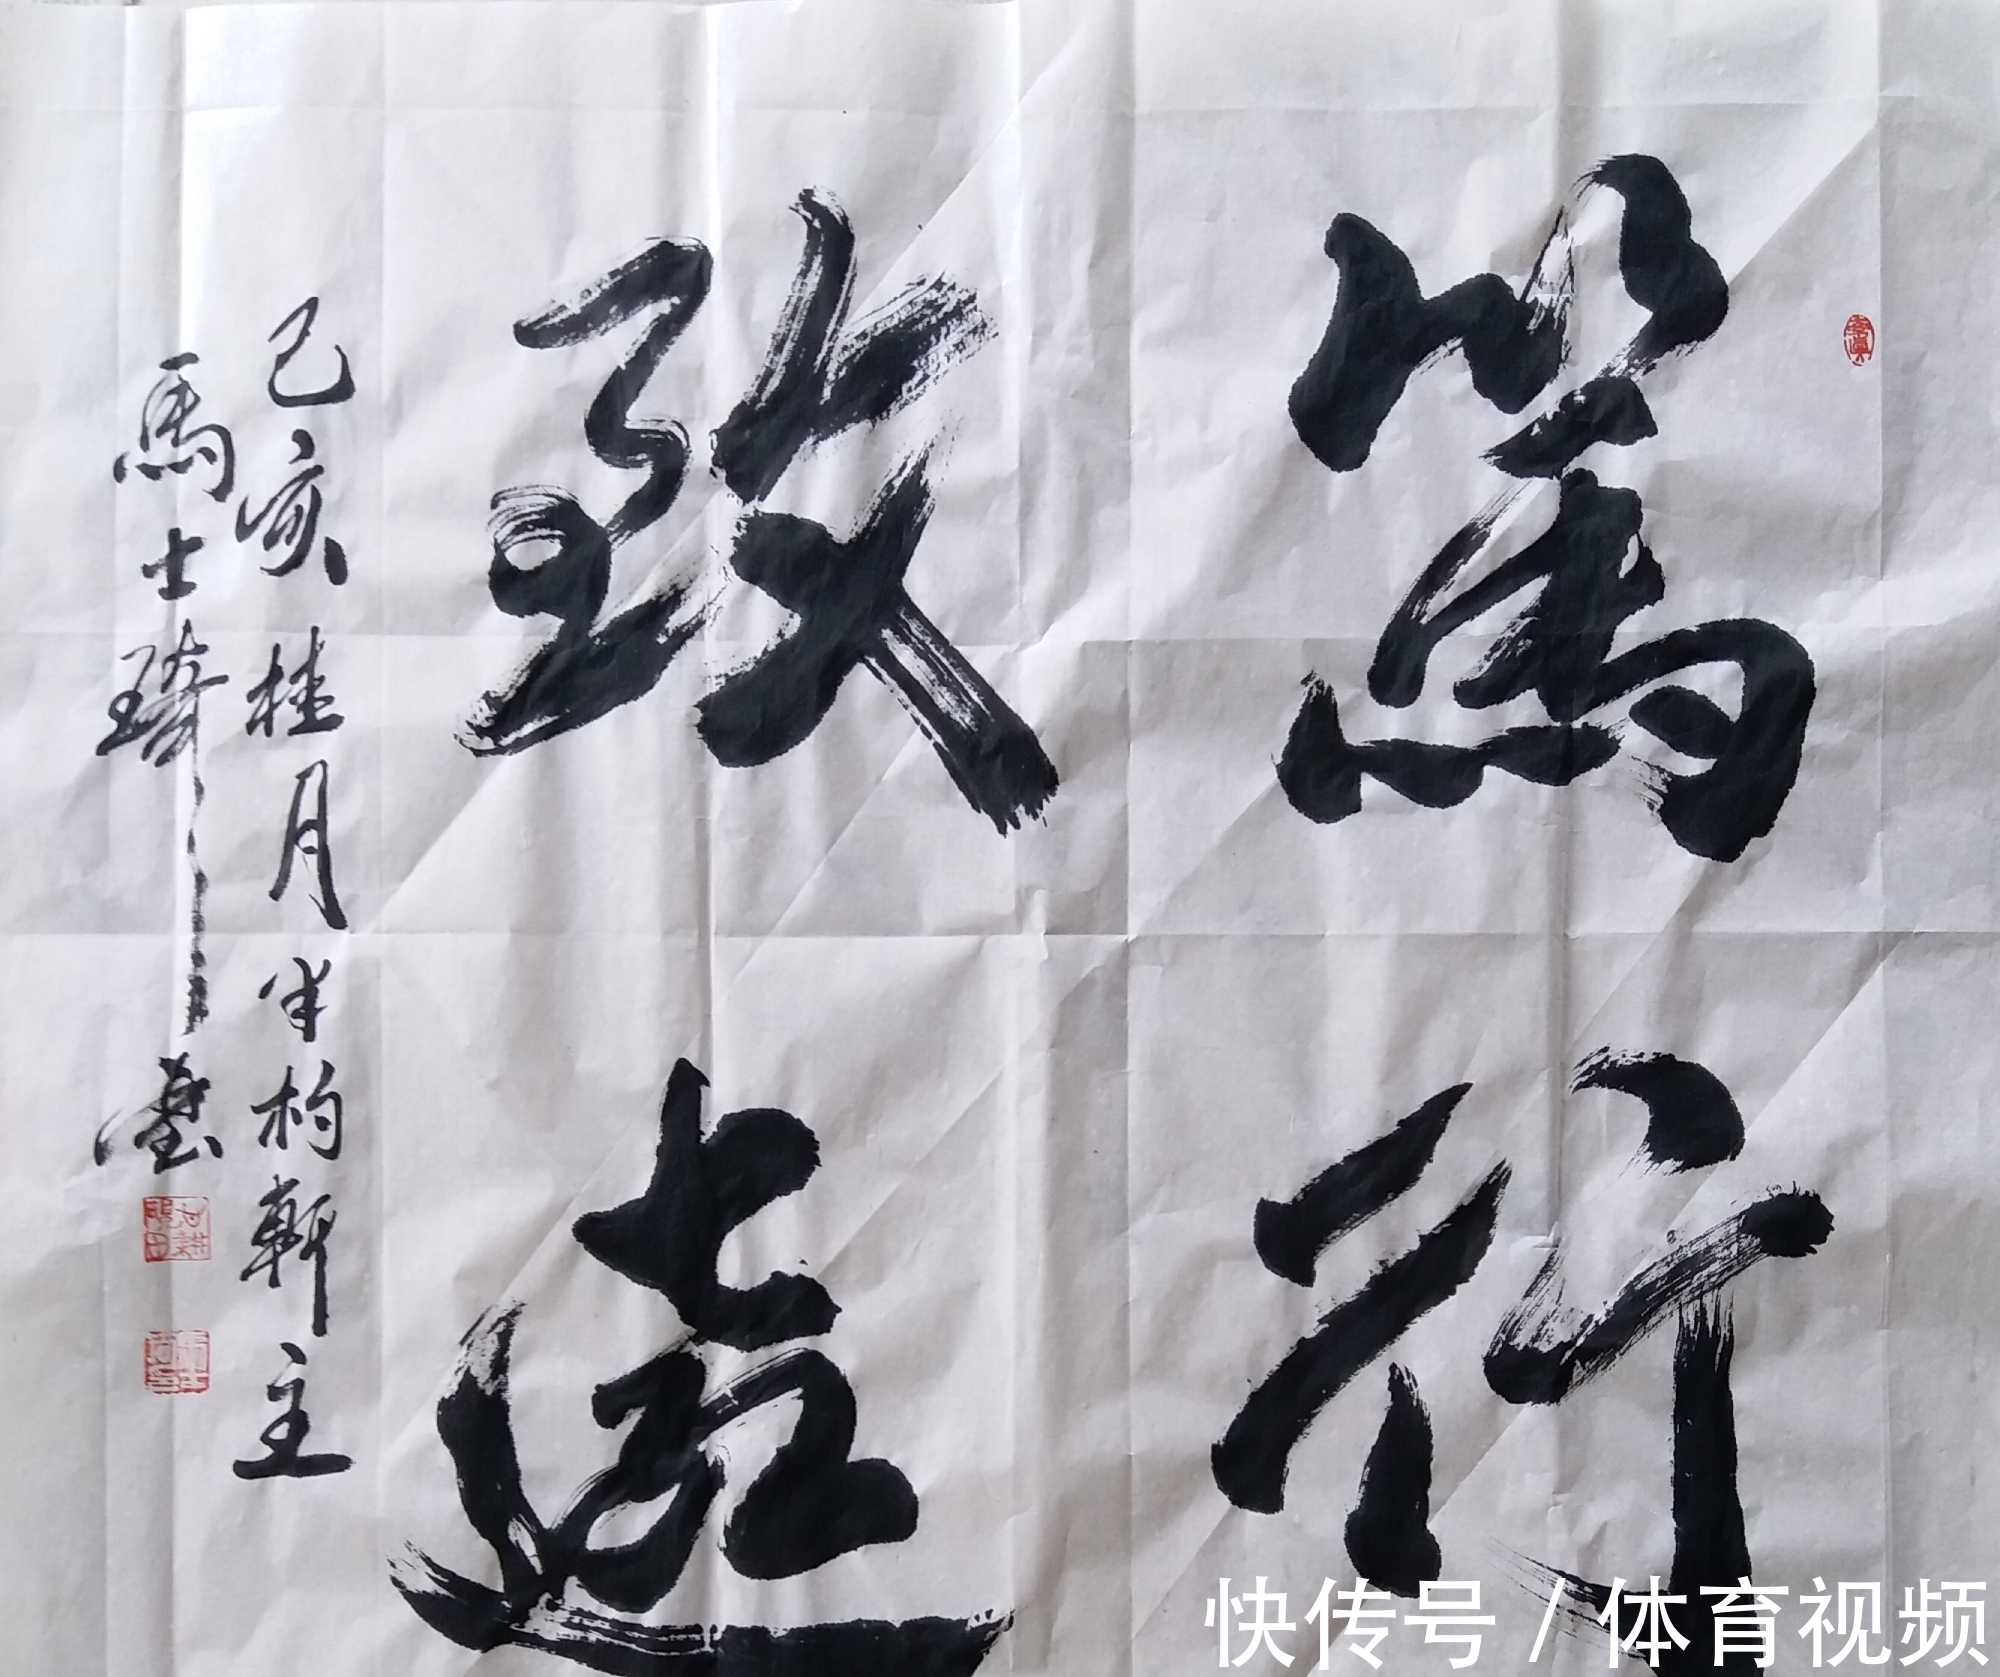 篤行
致遠
己亥桂月半杓軒主
馬士琦書
快传号 / 体育视频